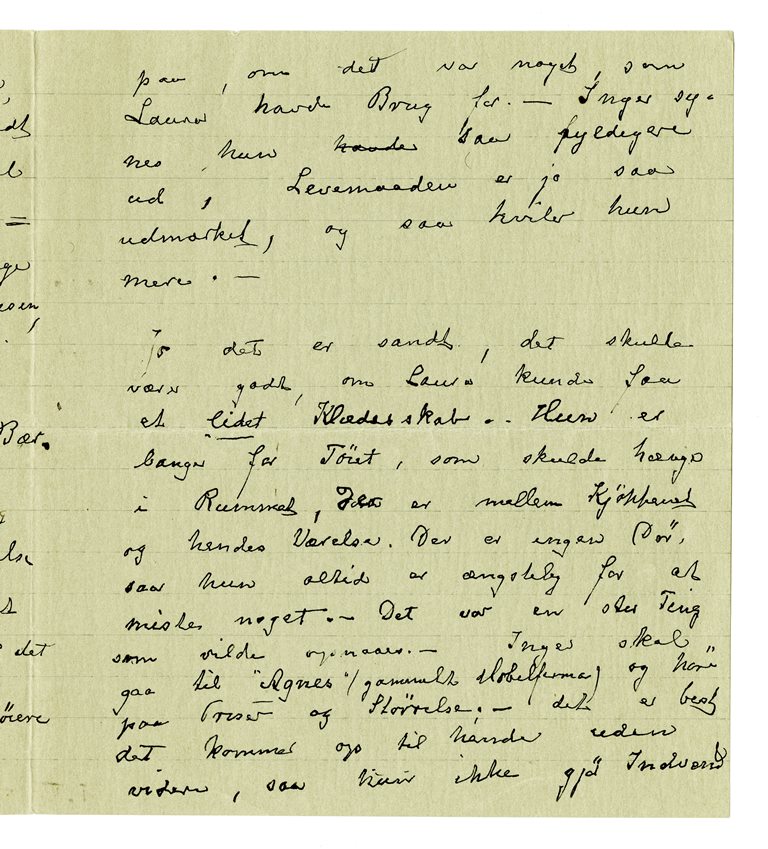 paa, om det var noget, som
Laura havde Brug for. — Inger sy-
nes hun havde saa fyldigere
ud, Levemaaden er jo saa
udmærket, og saa hviler hun
mere. —
Jo det er sandt, det skulle
være godt, om Laura kunde faa
et lidet Klædesskab. Hun er
bange for Töiet, som skulde hænge
i Rummet, der er mellem Kjökkenet
og hendes Værelse. Der er ingen Dör,
saa hun altid er ængstelig for at
miste noget. — Det var en stor Ting
som vilde opnaaes. — Inger skal
gaa til "Agnes" (gammelt Möbelfirma) og höre
paa Priser og Störrelse. — det er best
det kommer op til hende uden
videre, saa hun ikke gjör Indvend
Bær-
det
öiere